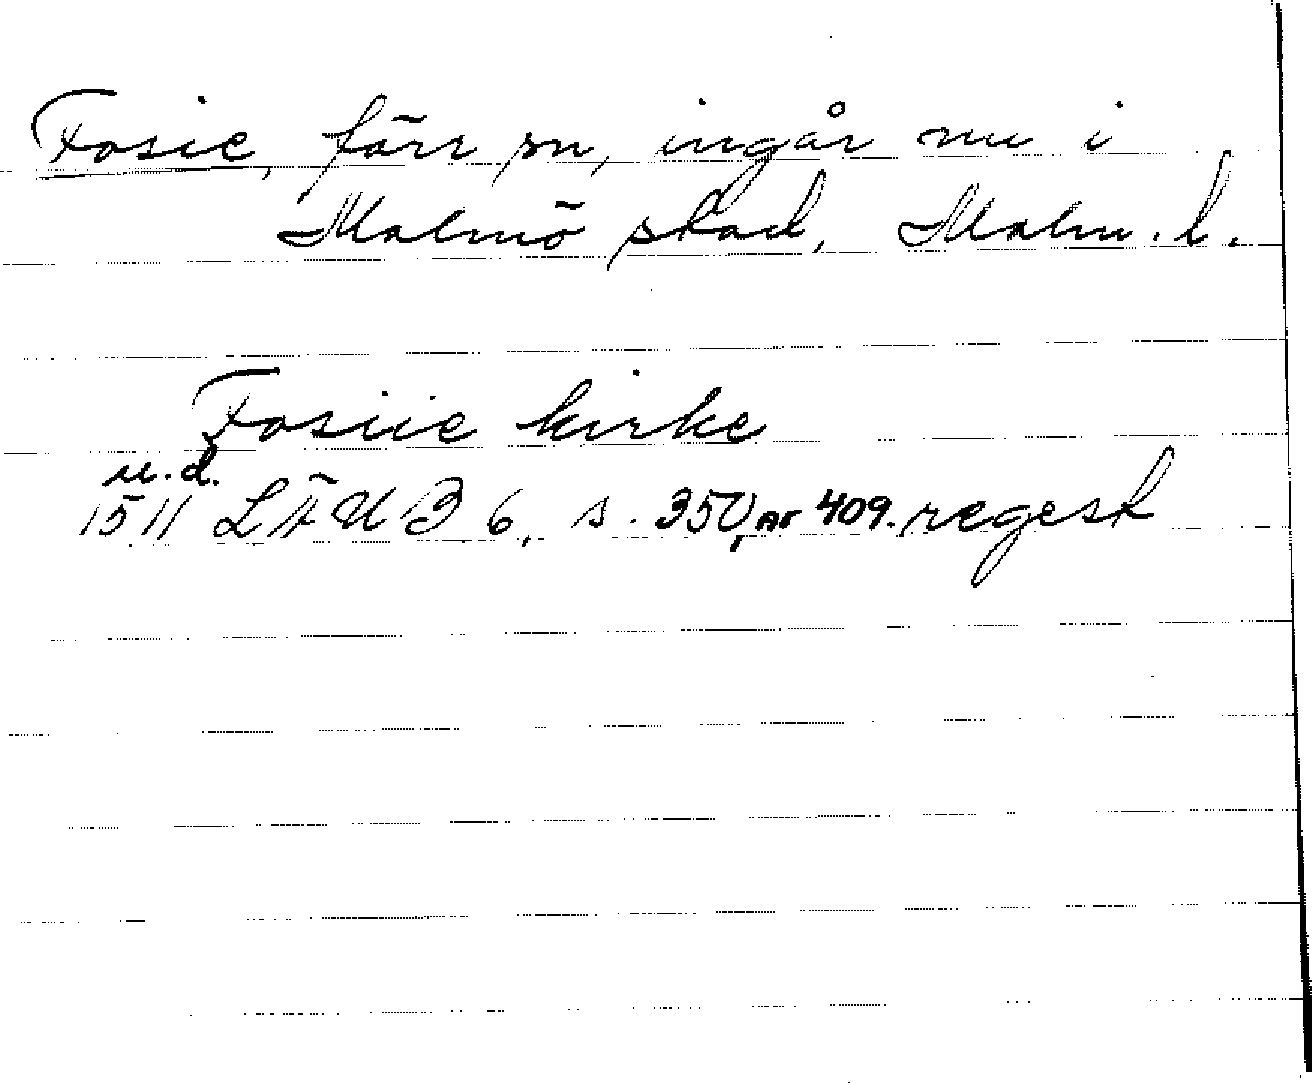 Fosie, förr sn, ingår nu i
Malmö stad, Malm. l.
Fosiie kirke
u.d.
1511 LÄUB 6, s. 350, nr 409. regest